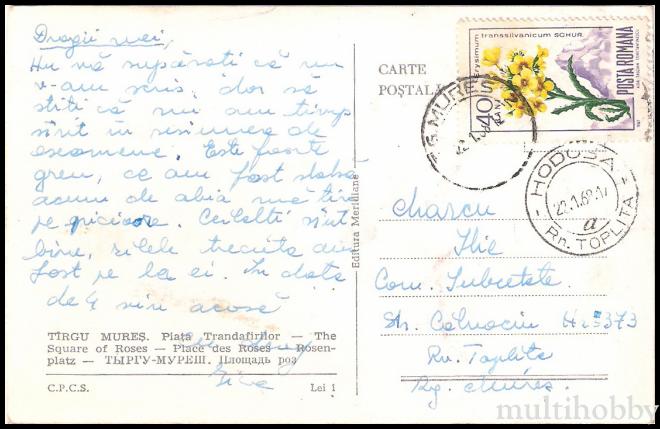 Dragii mei,
Nu vă supărați că nu
v-am scris, dar să
știți că nu am timp
sînt în sesiunea de
examene. Este foarte
greu, ce am fost slabă
acum de abia mă țin
pe picioare. Ceilalți sînt
bine, zilele trecute am
fost pe la ei. În data
de 4 vin acasă
TÎRGU MUREȘ. Piața Trandafirilor — The
Square of Roses — Place des Roses — Rosen-
platz — ТЫРГУ-МУРЕШ. Площадь роз
C.P.C.S. Lei 1
Editura Meridiane
CARTE
POȘTALĂ
erysimum transsilvanicum SCHUR.
POSTA ROMANA
40
TG. MUREȘ
HODOȘA
22.1.69.17
a
Rn. TOPLIȚA
Ilie
Com. Subcetate
Str. Nr 373
Rn. Toplița
Rg. Mureș
multihobby